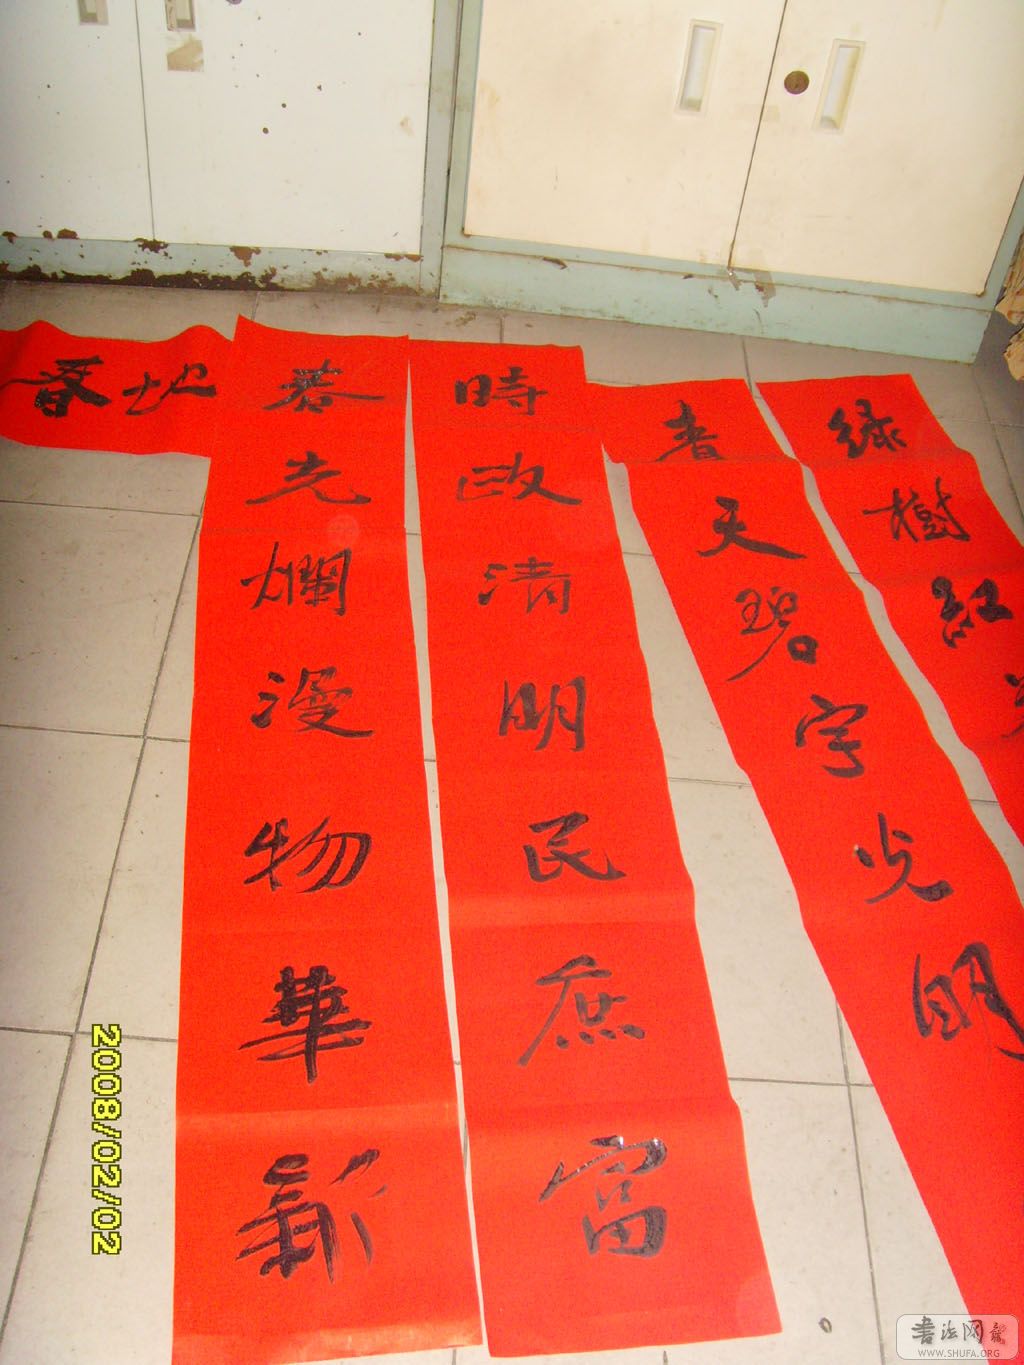 绿樹紅
天碧宇光明
時政清明民庶富
春光爛漫物華新
地春
2008/02/02
書法网
WWW.SHUFA.ORG